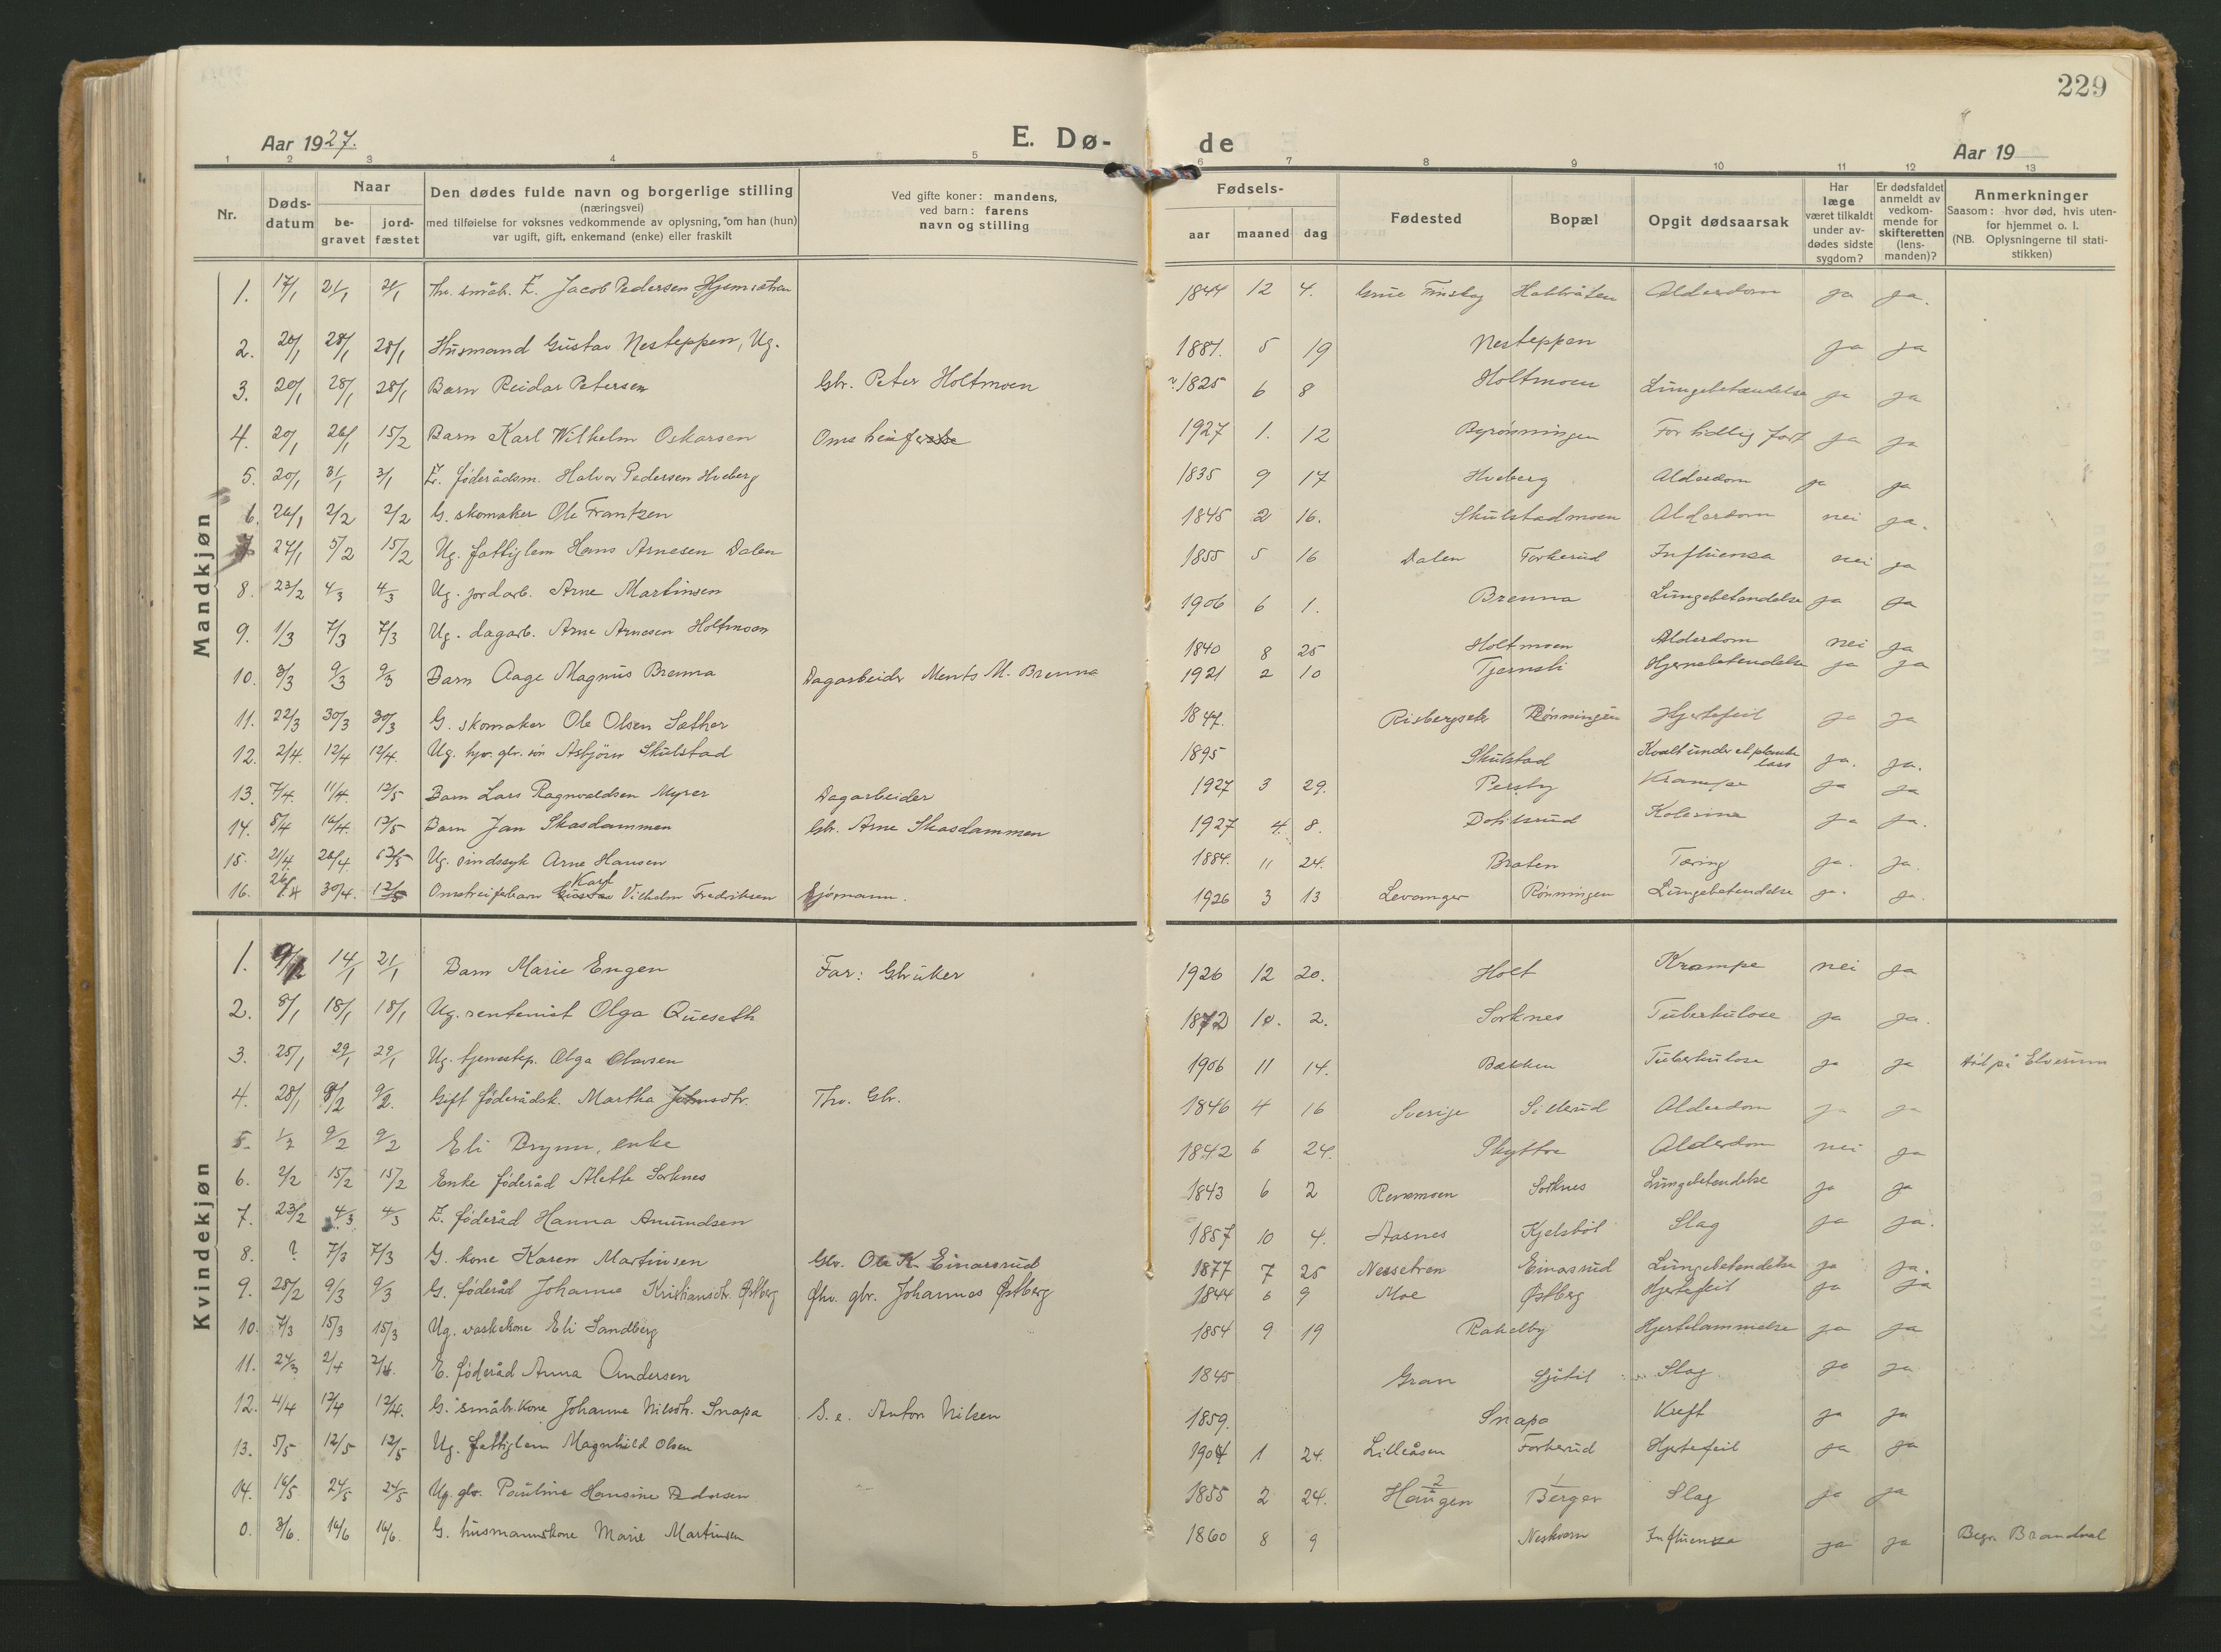 229
Aar 1927. E. Dø- de Aar 19
1 2 3 4 5 6 7 8 9 10 11 12 13
Nr. Døds-datum Naar be-gravet jord-fæstet Den dødes fulde navn og borgerlige stilling (næringsvei) med tilføielse for voksnes vedkommende av oplysning, om han (hun) var ugift, gift, enkemand (enke) eller fraskilt Ved gifte koner: mandens, ved barn: farens navn og stilling Fødsels- aar maaned dag Fødested Bopæl Opgit dødsaarsak Har læge været tilkaldt under av-dødes sidste sygdom? Er dødsfaldet anmeldt av vedkom-mende for skifteretten (lens-manden)? Anmerkninger Saasom: hvor død, hvis uten-for hjemmet o. l. (NB. Oplysningerne til stati-stikken)
Mandkjøn
1. 17/1 21/1 21/1 Thv. småbr. E. Jacob Pedersen 1844 12 4. Grue Finskog Alderdom ja ja.
2. 20/1 28/1 28/1 Husmand Gustav Nesteppen, Ug. 1881. 5 19 Nesteppen ja ja
3. 20/1 28/1 28/1 Barn Reidar Petersen Gbr. Peter Holtmoen 1825 6 8 Holtmoen Lungebetændelse ja ja
4. 20/1 26/1 15/2 Barn Karl Wilhelm Oskarsen 1927 1. 12 Byrönningen For tidlig født ja ja
5. 20/1 31/1 31/1 E. föderådsm. Halvor Pedersen Hveberg 1835 9 17 Hveberg Alderdom ja ja
6. 26/1 2/2 2/2 G. skomaker Ole Frantzen 1845 2 16. Skulstadmoen Alderdom nei ja.
7 27/1 5/2 15/2 Ug. fattiglem Hans Arnesen Dalen 1855 5 16 Dalen Forkerud Influensa nei ja
8. 23/2 4/3 4/3 Ug. jordarb. Arne Martinsen 1906 6 1. Brenna Lungebetendelse ja ja
9. 1/3 7/3 7/3 Ug. dagarb. Arne Arnesen Holtmoen 1840 8 25 Holtmoen Alderdom nei ja
10. 3/3 9/3 9/3 Barn Aage Magnus Brenna Dagarbeider Ments M. Brenna 1921 2 10 Tjernsli Hjernebetendelse ja ja
11. 22/3 30/3 30/3 G. skomaker Ole Olsen Sæther 1847. Risbergseter Rönningen Hjertefeil ja ja
12. 2/4. 12/4 12/4. Ug. hjv. gbr. sön Asbjörn Skulstad 1895 Skulstad Kvalt under et planke lass ja. ja.
13. 7/4. 11/4. 12/5 Barn Lars Ragnvaldsen Myrer Dagarbeider 1927 3 29. Persby Krampe ja ja
14. 8/4 16/4. 12/5 Barn Jan Skasdammen Gbr. Arne Skasdammen 1927 4. 8. Kolerina ja ja.
15. 21/4. 26/4 12/5 Ug. sindssyk Arne Hansen 1884. 11 24. Braten Tæring ja. ja.
16. 26/4 30/4. 12/5 Omstreiferbarn Gustav Karl Vilhelm Fredriksen Sjömann. 1926 3 13 Levanger Rönningen Lungebetendelse ja. ja.
Kvindekjøn
1. 9/1 14/1 21/1 Barn Marie Engen Far: Gbruker 1926 12 20. Holt Krampe nei ja
2. 8/1 18/1 18/1 Ug. rentenist Olga Queseth 1872 10. 2. Sorknes Tuberkulose ja ja.
3. 25/1 29/1 29/1 Ug. tjenestep. Olga Olavsen 1906 11 14. Bækken Tuberkulose ja ja död på Elverum
4. 28/1 9/2 9/2. Gift föderådsk. Martha Johnsdtr. Thv. Gbr. 1846 4 16 Sverige Sillerud Alderdom ja ja
5 1/2 9/2 9/2 Eli Brynn, enke 1842 6 24. Alderdom nei ja
6. 2/2 15/2 15/2 Enke föderåd Alette Sorknes 1843 6 2 Revemoen Sorknes Lungebetendelse ja ja
7. 23/2 4/3 4/3 E. föderåd Hanna Amundsen 1857 10 4. Aasnes Kjelsböl Slag ja ja.
8. ? 7/3 7/3 G. kone Karen Martinsen Gbr. Ole K. Einarsrud 1877 7 25 Nessetren Einarsrud Lungebetendelse ja ja.
9. 28/2 9/3 9/3 G. föderåd Johanne Kristiansdtr. Østberg fhv. gbr. Johannes Østberg 1844 6 9 Moe Østberg Hjertefeil ja ja
10. 7/3 15/3 15/3 Ug. vaskekone Eli Sandberg 1854 9 19 Rakelby Hjertelammelse ja ja
11. 24/3 2/4 2/4. E. föderåd Anna Andersen 1845 Gran Sjötil Slag ja ja
12. 4/4 12/4 12/4. G. småbr. kone Johanne Nilsdtr. Snapa S. e. Anton Nilsen 1859. Snapa Kreft ja ja
13. 5/5 12/5 12/5 Ug. fattiglem Magnhild Olsen 1904 1 24. Lilleåsen Forkerud Hjertefeil ja ja
14. 16/5 24/5 24/5 Ug. gbr. Pauline Hansine Pedersen 1855 2 24. Haugen 2 Berger 1 Slag ja ja
0. 3/6. 16/6 16/6. G. husmannskone Marie Martinsen 1860 8 9 Neskvern Influensa ja ja Begr. Brandval